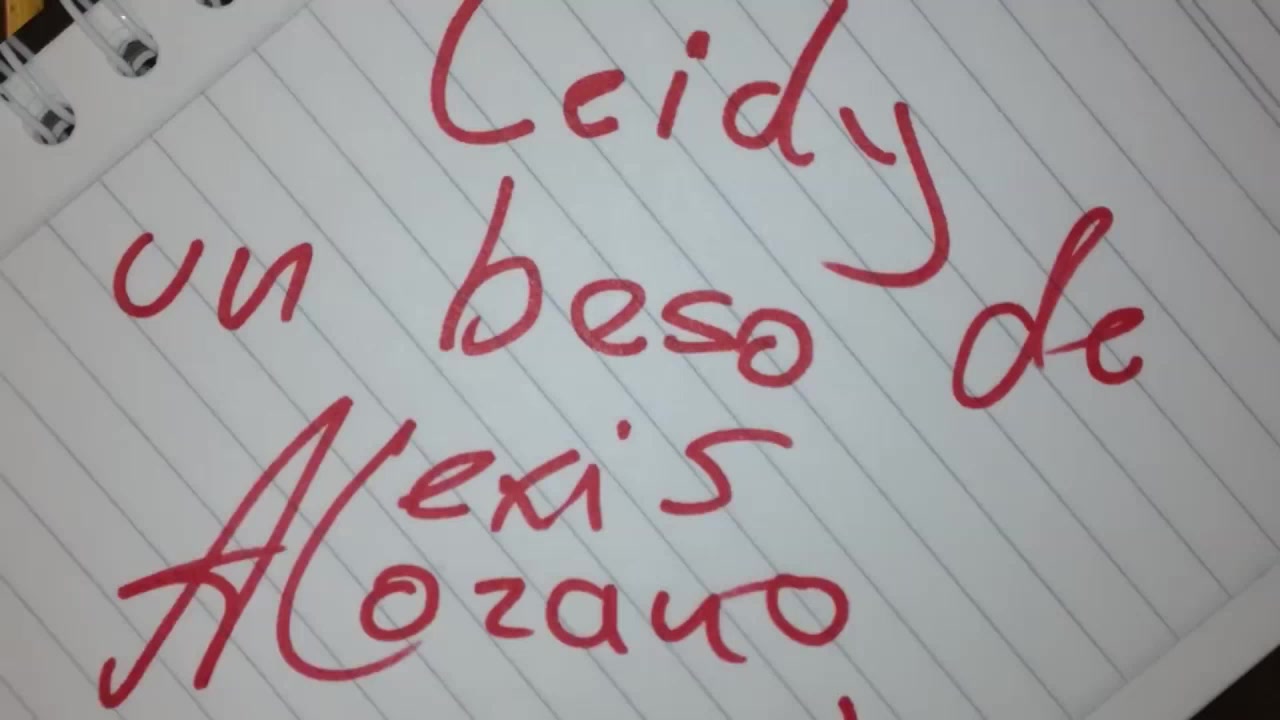 Leidy
un beso de
Alexis
Lozano